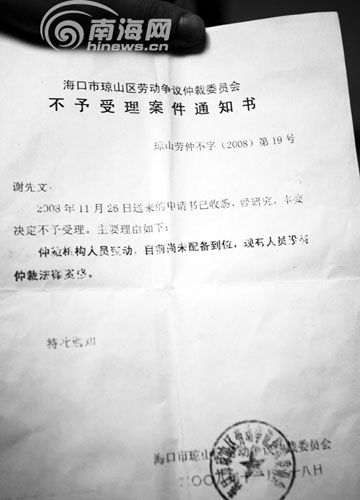 南海网
www.hinews.cn
海口市琼山区劳动争议仲裁委员会
不予受理案件通知书
琼山劳仲不字（2008）第19号
谢先文：
2008年11月26日送来的申请书已收悉，经研究，本委
决定不予受理。主要理由如下：
仲裁机构人员变动，目前尚未配备到位，现有人员没有
仲裁法律资格。
特此通知
海口市琼山区劳动争议仲裁委员会
二〇〇八年十一月二十八日